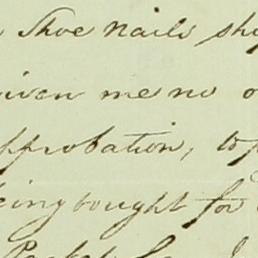 Shoe nails
given me no
approbation, to
being bought for